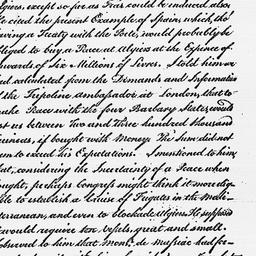 Algiers, except so far as Fear could be induced also.
He cited the present Example of Spain, which, tho'
having a Treaty with the Porte, would probably be
obliged to buy a Peace at Algiers at the Expence of
upwards of Six Millions of Livres. I told him we
had calculated from the Demands and Information
of the Tripoline ambassador at London, that to
make Peace with the four Barbary States, would
cost us between Two and three hundred thousand
Guineas, if bought with Money. The Sum did not
seem to exceed his Expectations. I mentioned to him,
that, considering the Incertainty of a Peace when
bought, perhaps Congress might think it more eligi-
ble to establish a Cruise of Frigates in the Medi-
terranean, and even to blockade Algiers. He supposed
it would require ten Vessels, great and small.
I observed to him that Mons. de Massiac had for-